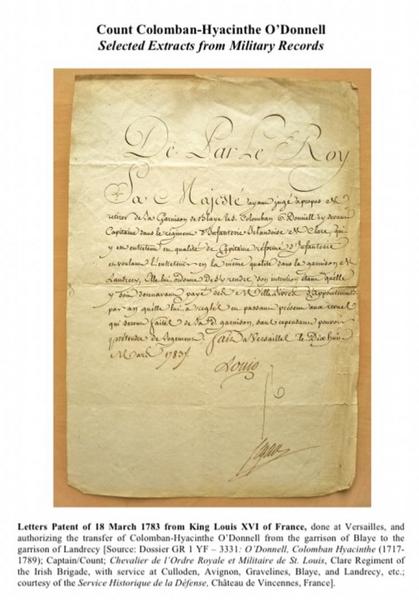 Count Colomban-Hyacinthe O’Donnell
Selected Extracts from Military Records
De Par Le Roy
Sa Majesté ayant jugé à propos de
retirer de la Garnison de Blaye le S. Colomban O Donnell cy devant
Capitaine dans le régiment d'Infanterie Irlandoise de Clare, qui
y est entretenu en qualité de Capitaine réformé d'Infanterie
en voulant l'entretenir en la même qualité dans la garnison de
Landrecy, Elle lui ordonne de s'y rendre son intention étant qu'elle
y soit payé des de Mille livres d'appointement
par an qu'elle lui a réglé en passant présent aux revues
qui seront faites de la d. garnison, sans cependant pouvoir
prétendre de logement. Fait à Versailles le Dix huit
Mars 1783.
Louis
Letters Patent of 18 March 1783 from King Louis XVI of France, done at Versailles, and
authorizing the transfer of Colomban-Hyacinthe O’Donnell from the garrison of Blaye to the
garrison of Landrecy [Source: Dossier GR 1 YF – 3331: O’Donnell, Colomban Hyacinthe (1717-
1789); Captain/Count; Chevalier de l’Ordre Royale et Militaire de St. Louis, Clare Regiment of
the Irish Brigade, with service at Culloden, Avignon, Gravelines, Blaye, and Landrecy, etc.;
courtesy of the Service Historique de la Défense, Château de Vincennes, France].